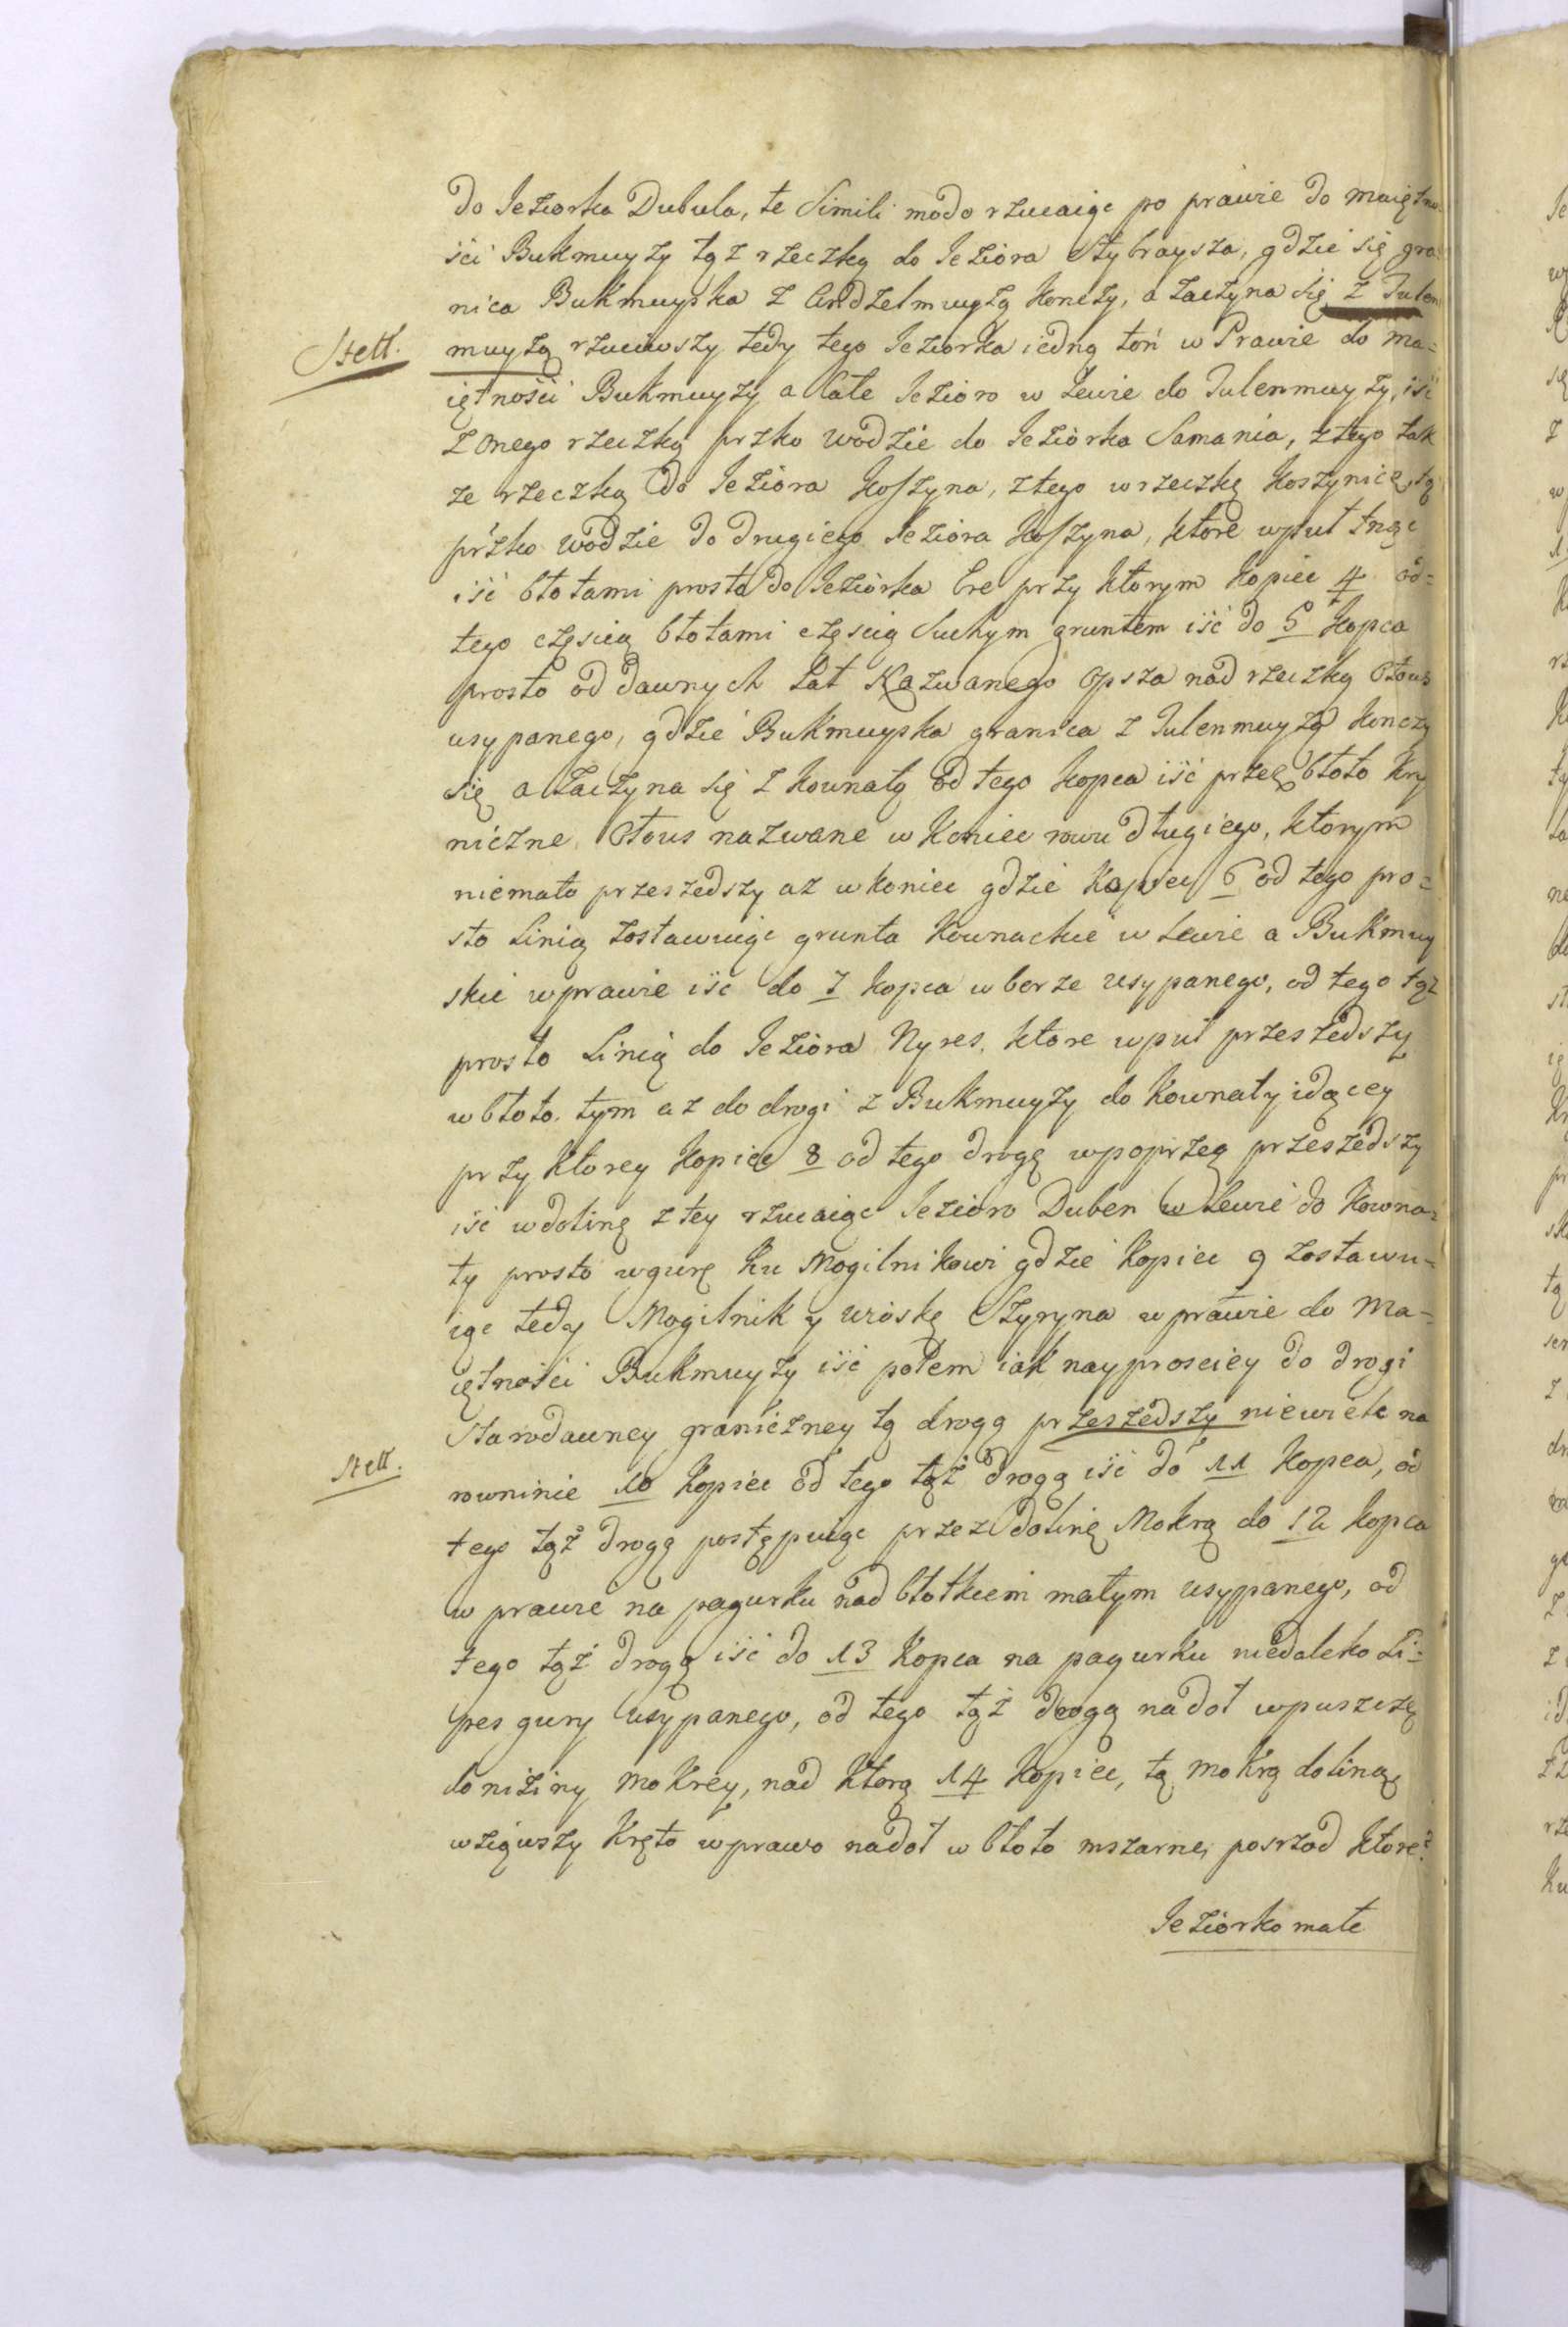 do Jeziorka Dubula, te Simili modo rzucaiąc po prawie do maiętno-
ści Bukmuyży tąż rzeczką do Jeziora Stybraysza, gdzie się gra-
nica Bukmuyska z Andzelmuyżą kończy, a zaczyna się z Julen
Stett.
muyżą rzuciwszy tedy tego Jeziorka iedną toń w Prawie do ma-
iętności Bukmuyży a całe Jezioro w Lewie do Julenmuyży, iść
z onego rzeczką przko wodzie do Jeziórka Samania, z tego tak
że rzeczką do Jezióra Koszyna, z tego w rzeczkę Koszynicę, tą
przko wodzie do drugiego Jezióra Koszyna, które wpuł tnąc
iść błotami prosto do Jeziórka Ere przy którym kopiec 4 od-
tego częscią błotami częscią Suchym gruntem iść do 5 kopca
prosto od dawnych Lat Nazwanego Opsza nad rzeczką Otous
usypanego, gdzie Bukmuyska granica z Julenmuyżą konczy
się a zaczyna się z Kownatą od tego kopca iść przez błoto Kry
niczne Otous nazwane w koniec rowu długiego, którym
niemało przeszedszy aż w koniec gdzie Kopiec 6 od tego pro-
sto Linią zostawuiąc grunta Kownackie w Lewie a Bukmuy
skie w prawie iśc do 7 kopca w borze usypanego, od tego tąż
prosto Linią do Jezióra Nyres, ktore wpuł przeszedszy
w błoto, tym aż do drogi z Bukmuyży do Kownaty idącey
przy ktorey kopiec 8 od tego drogę wpoprzeg przeszedszy
iść w dolinę z tey rzucaiąc Jezioro Duben w Lewie do Kowna-
ty prosto w gurę ku Mogilnikowi gdzie kopiec 9 zostawu-
iąc tedy Mogilnik y wioskę Szyryna w prawie do Ma-
iętności Bukmuyży iść potem iak nayprosciey do drogi
Starodawney graniczney tą drogą przeszedszy niewiele na
Stett.
rowninie 10 kopiec od tego tąż drogą iść do 11 kopca, od
tego tąż drogą postępuiąc przez dolinę Mokrą do 12 kopca
w prawie na pagurku nad błotkiem małym usypanego, od
tego tąż drogą iść do 13 Kopca na pagurku niedaleko Li-
pes gury usypanego, od tego tąż drogą nadoł wpuszczę
do niziny mokrey, nad ktorą 14 kopiec, tą mokrą doliną
wziąwszy Kręto w prawo nadoł w błoto mszarne, posrzod ktore-
Jeziórko małe